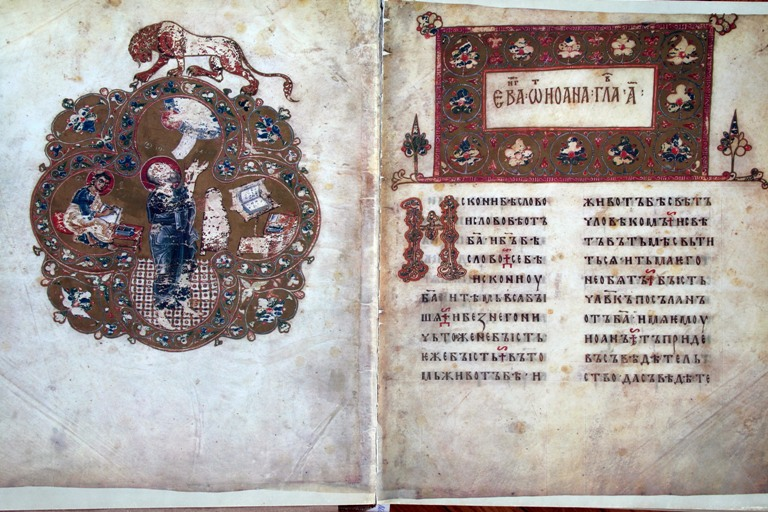 ЕВⷢ҇А·Ѡⷮ ИОАНА·ГЛАⷡ·А҃:
ИСКОНИ БѢ СЛОВО
И СЛОВО БѢ ОТЪ
Б҃А·И Б҃Ъ БѢ
СЛОВО ⁘ СЕ БѢ
ИСКОНИ ОУ
Б҃А·И ТѢМЬ ВСА БЪІ
ШѦ ⁘ И БЕЗ НЕГО НИ
ЧЬТОЖЕ НЕ БЪІСТЬ
ЕЖЕ БЪІСТЬ ⁘ ВЪ ТО
МЬ ЖИВОТЪ БѢ·И
ЖИВОТЪ БѢ СВѢТЪ
ЧЛОВѢКОМЪ ⁘ И СВѢ
ТЪ ВЪ ТЬМѢ СВЬТИ
ТЬСѦ·И ТЬМА ѤГО
НЕ ОБѦТЪ ⁘ БЪІСТЬ
ЧЛ҃ВКЪ ПОСЪЛАНЪ
ОТЪ Б҃А·ИМѦ ѤМОУ
ИОАНЪ ⁘ ТЪ ПРИДЕ
ВЪ СЪВѢДѢТЕЛЬ
СТВО·ДА СЪВѢДѢТЕ